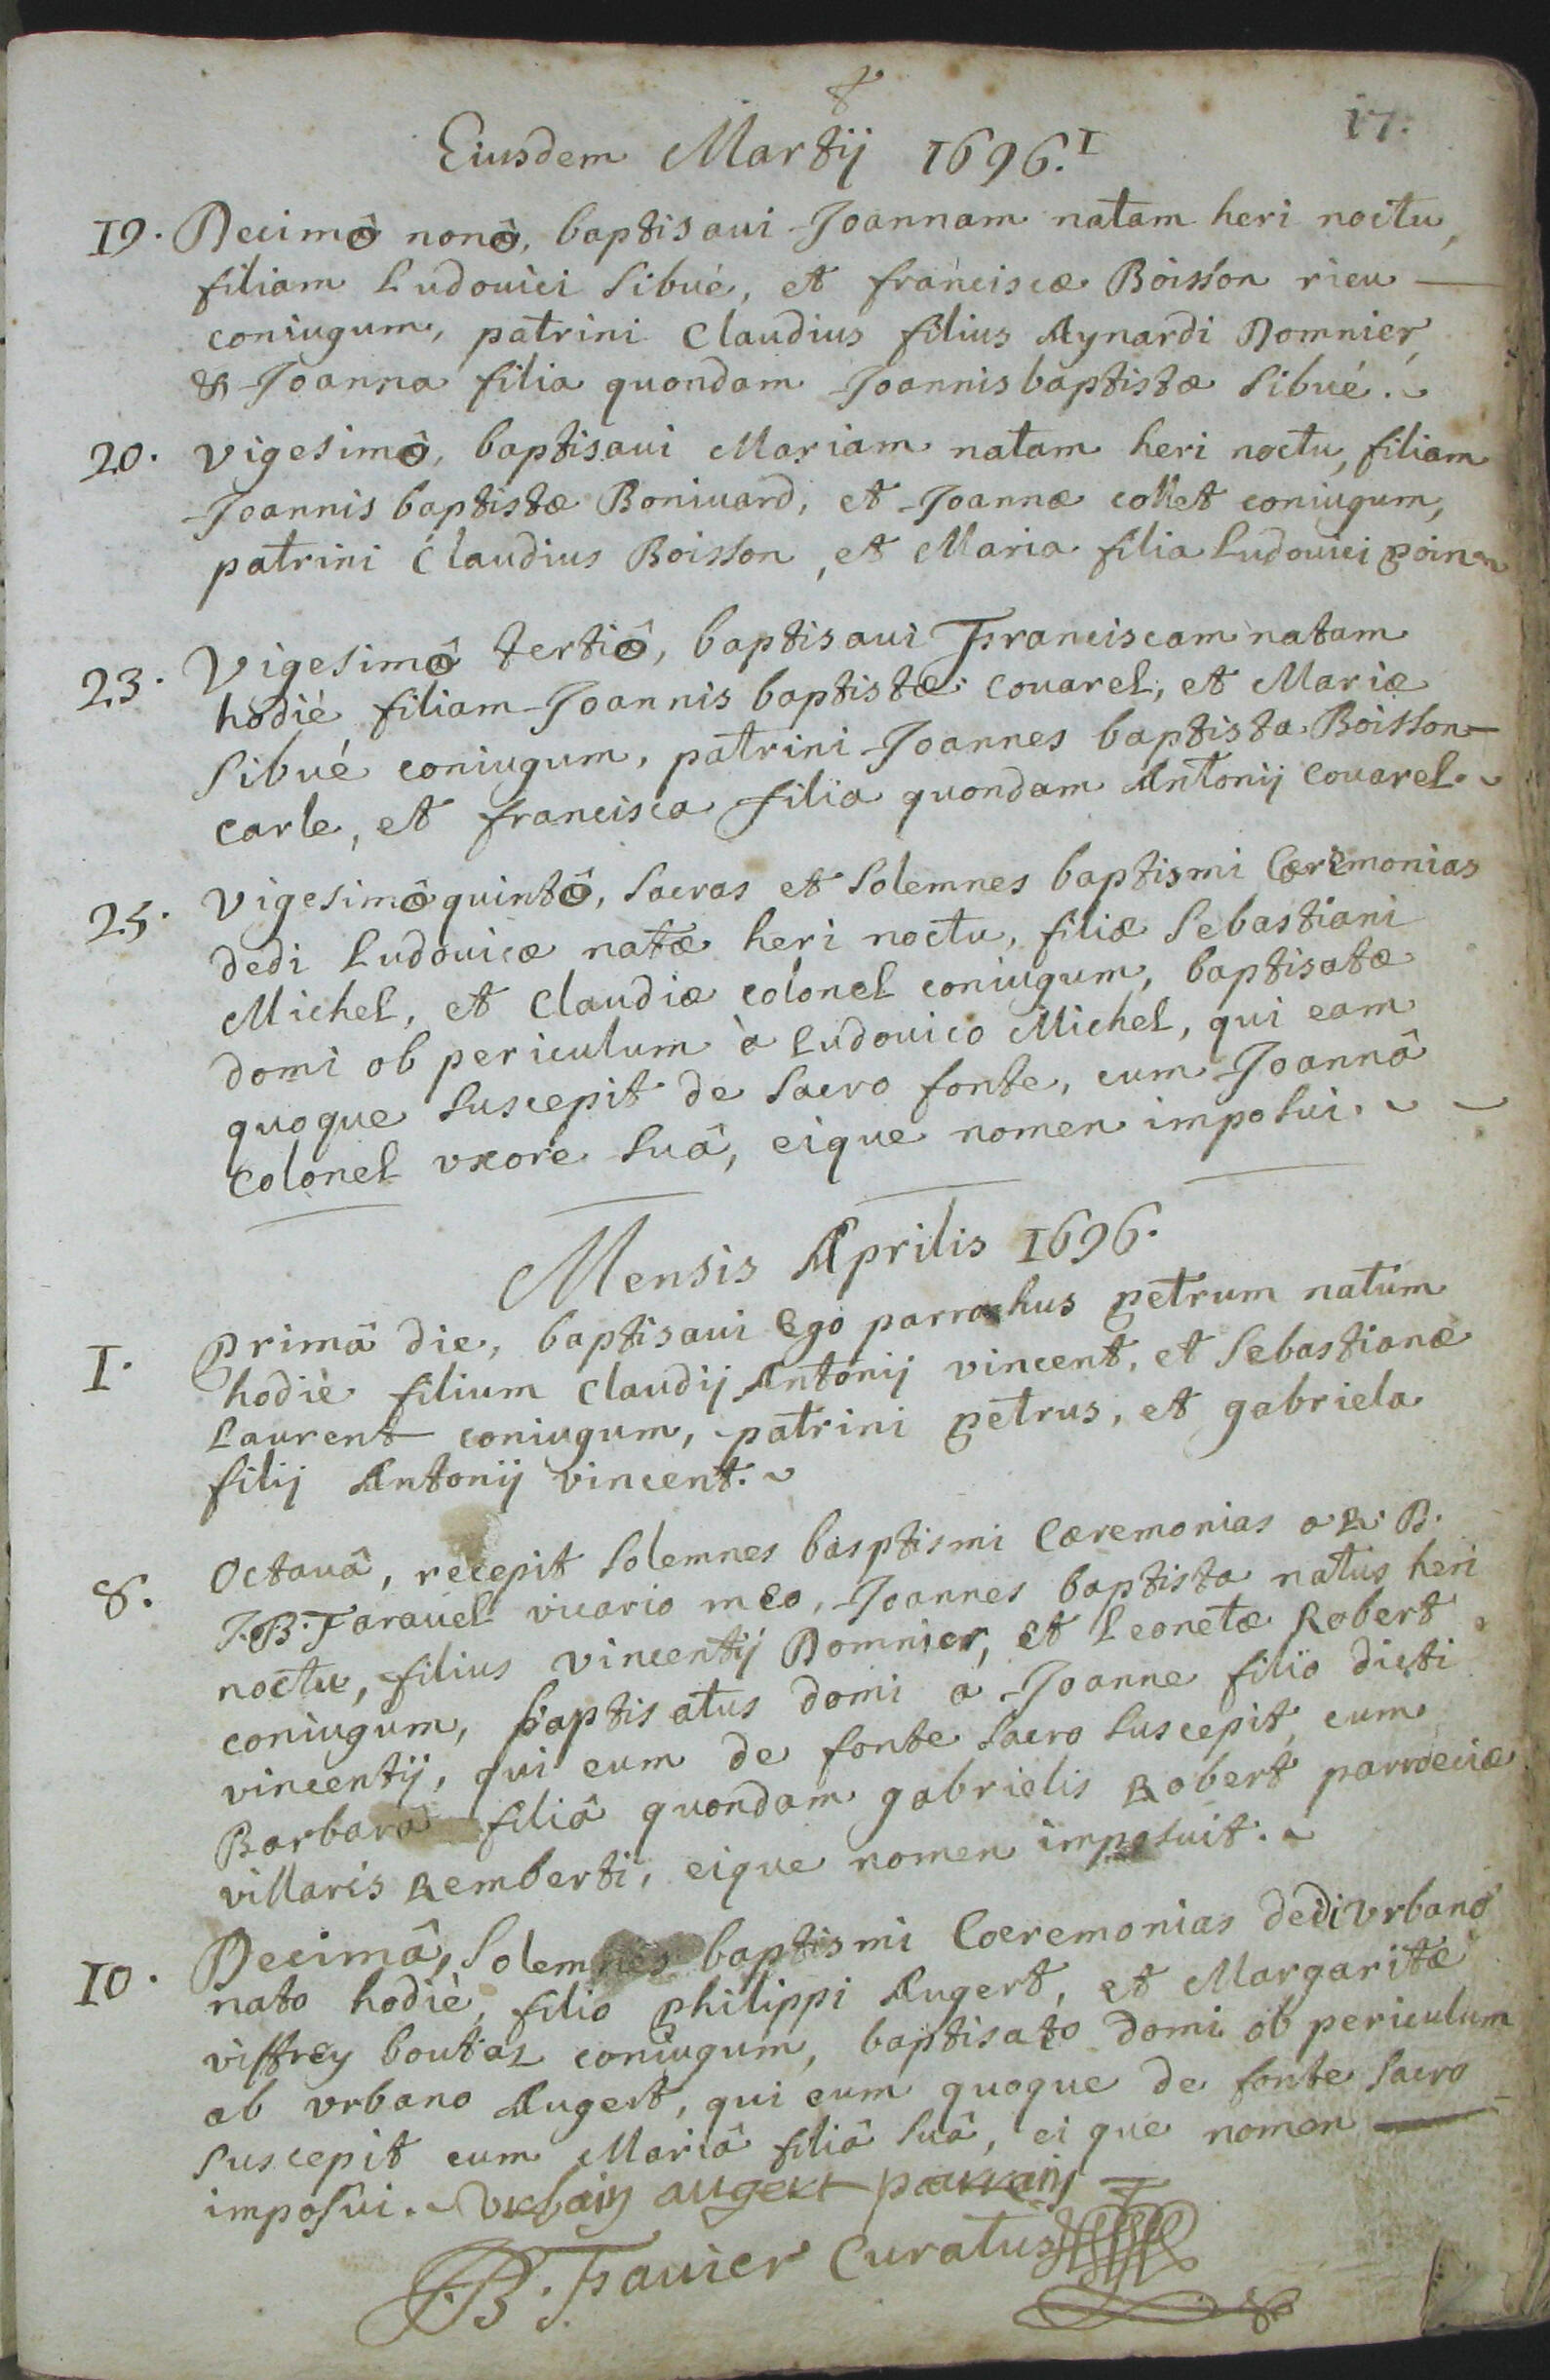 17.
Eiusdem Martij 1696.
19. Decimô nonô, baptisaui Joannam natam heri noctu,
filiam Ludouici Sibué, et franciscæ Boisson rieu
coniugum, patrini Claudius filius Aynardi Domnier,
& Joanna filia quondam Joannisbaptistæ Sibué.
20. vigesimô, baptisaui Mariam natam heri noctu, filiam
Joannis baptistæ Boniuard, et Joannæ collet coniugum,
patrini Claudius Boisson, et Maria filia Ludouici
23. Vigesimô tertiô, baptisaui Franciscam natam
hodiè filiam Joannis baptistæ couarel, et Mariæ
Sibué coniugum, patrini Joannes baptista Boisson
carle, et francisca filia quondam Antonij couarel.
25. vigesimô quintô, Sacras et Solemnes baptismi Cæremonias
dedi Ludouicæ natæ heri noctu, filiæ Sebastiani
Michel, et Claudiæ colonel coniugum, baptisatæ
domi ob periculum à Ludouico Michel, qui eam
quoque Suscepit de Sacro fonte, cum Joannâ
Colonel vxore Suâ, eique nomen imposui.
Mensis Aprilis 1696.
1. Primâ die, baptisaui Ego parrochus petrum natum
hodiè filium claudij Antonij vincent, et Sebastianæ
Laurent coniugum, patrini petrus, et gabriela
filij Antonij vincent.
8. Octauâ, recepit Solemnes basptismi Cæremonias a R. D.
J.B. Tarauel vicario meo, Joannes baptista natus heri
noctu, filius vincentij Domnier, et Leonetæ Robert
coniugum, baptisatus domi a Joanne filio dicti
vincentij, qui eum de fonte Sacro Suscepit, cum
Barbarâ filiâ quondam gabrielis Robert parroeciæ
villaris Remberti, eique nomen imposuit.
10. Decimâ, Solemnes baptismi Coeremonias dedi vrbano
nato hodiè, filio philippi Augert, et Margaritæ
viffrey boutaz coniugum, baptisato domi ob periculum
ab vrbano Augert, qui eum quoque de fonte Sacro
Suscepit cum Mariâ filiâ Suâ, ei que nomen
imposui. Vrbain augert parrain
J.B. Fauier Curatus